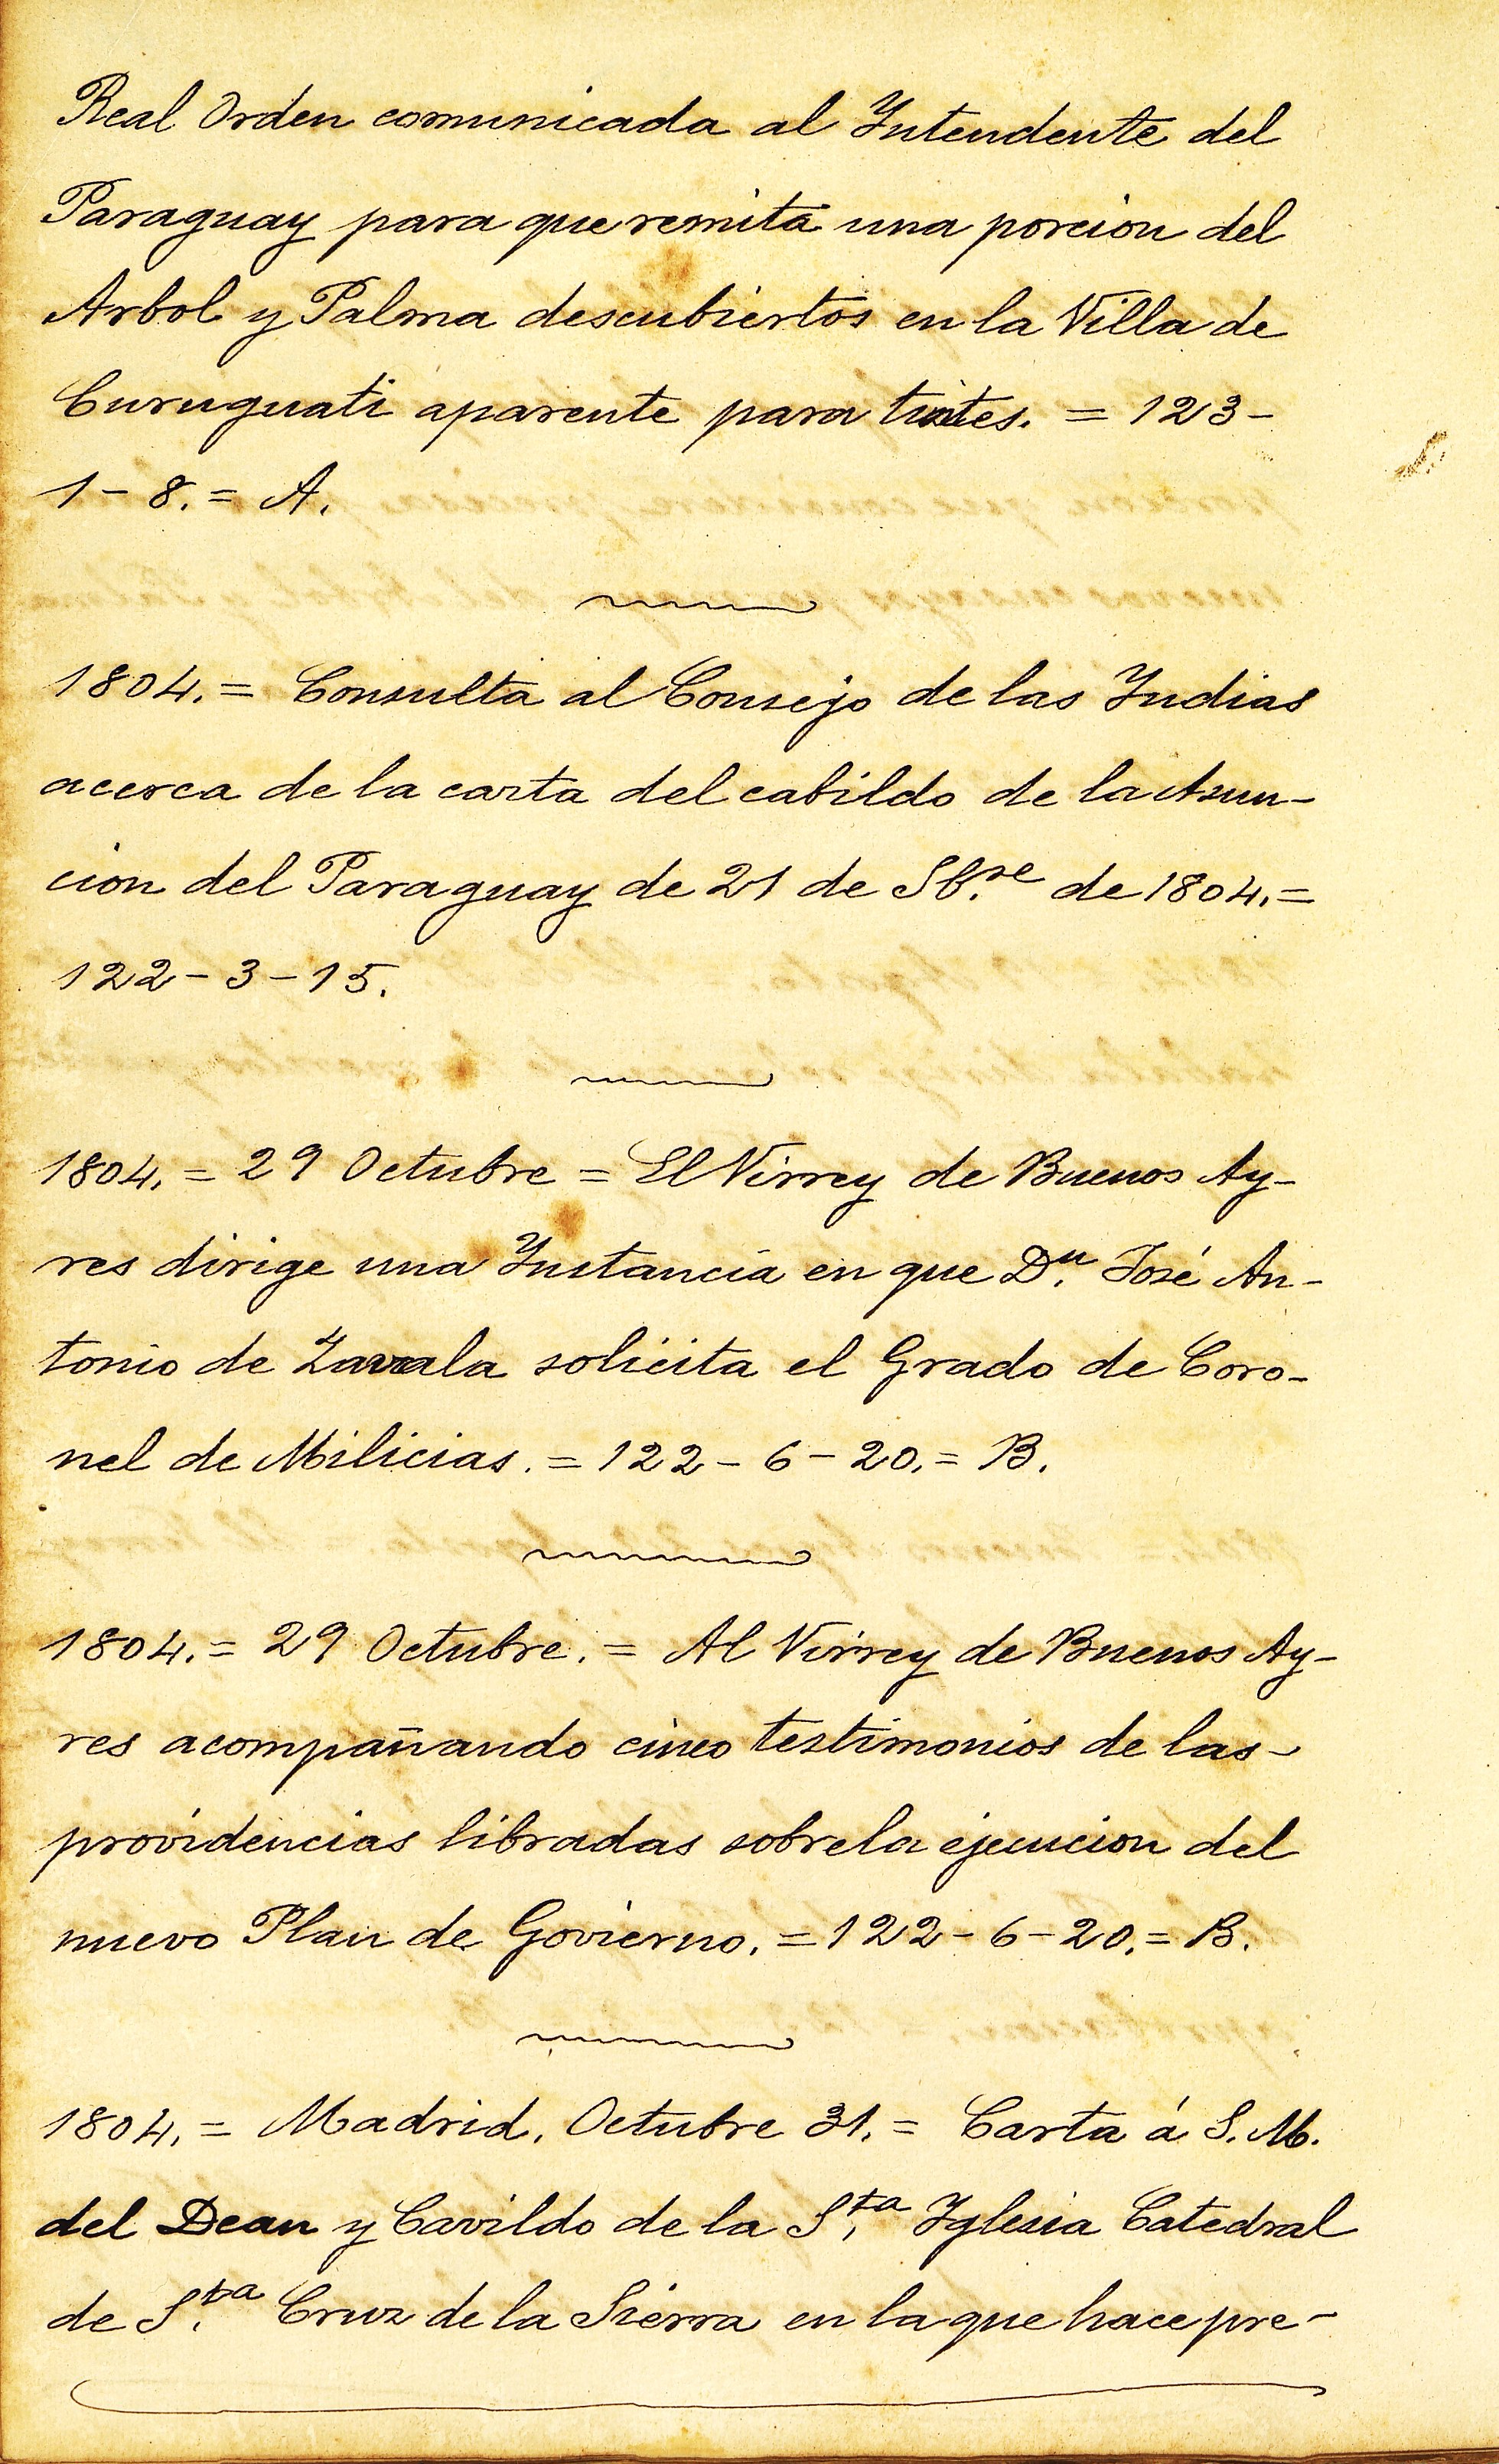 Real Orden comunicada al Intendente del
Paraguay para que remita una porcion del
Arbol y Palma descubiertos en la Villa de
Curuguati aparente para tintes. = 123-
1-8. = A.
1804. = Consulta al Consejo de las Indias
acerca de la carta del cabildo de la Asun-
cion del Paraguay de 21 de Sb.re de 1804. =
122-3-15.
1804. = 29 Octubre = El Virrey de Buenos Ay-
res dirige una Instancia en que D.n José An-
tonio de Zavala solicita el Grado de Coro-
nel de Milicias. = 122-6-20. = B.
1804. = 29 Octubre. = Al Virrey de Buenos Ay-
res acompañando cinco testimonios de las-
providencias libradas sobre la ejecucion del
nuevo Plan de Govierno. = 122-6-20. = B.
1804. = Madrid. Octubre 31. = Carta á S. M.
del Dean y Cavildo de la S.ta Iglesia Catedral
de S.ta Cruz de la Sierra en la que hace pre-